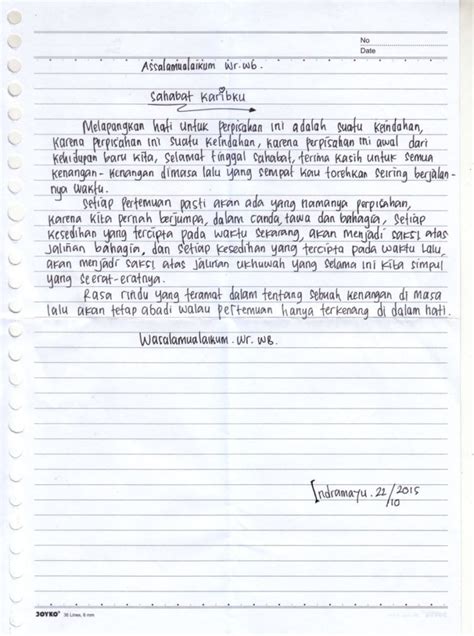 No
Date
Assalamualaikum Wr.Wb.
Sahabat Karibku
Melapangkan hati untuk perpisahan ini adalah suatu keindahan,
karena perpisahan ini suatu keindahan, karena perpisahan ini awal dari
kehidupan baru kita, selamat tinggal sahabat, terima kasih untuk semua
kenangan-kenangan dimasa lalu yang sempat kau torehkan seiring berjalan-
nya waktu.
Setiap Pertemuan pasti akan ada yang namanya perpisahan,
karena kita pernah berjumpa, dalam canda, tawa dan bahagia, setiap
kesedihan yang tercipta pada waktu sekarang, akan menjadi saksi atas
jalinan bahagia, dan setiap kesedihan yang tercipta pada waktu lalu,
akan menjadi saksi atas jalinan ukhuwah yang selama ini kita simpul
yang seerat-eratnya.
Rasa rindu yang teramat dalam tentang sebuah kenangan di masa
lalu akan tetap abadi walau pertemuan hanya terkenang di dalam hati.
Wasalamualaikum. Wr. WB.
Indramayu. 22/10 2015
JOYKO 36 Lines, 8 mm